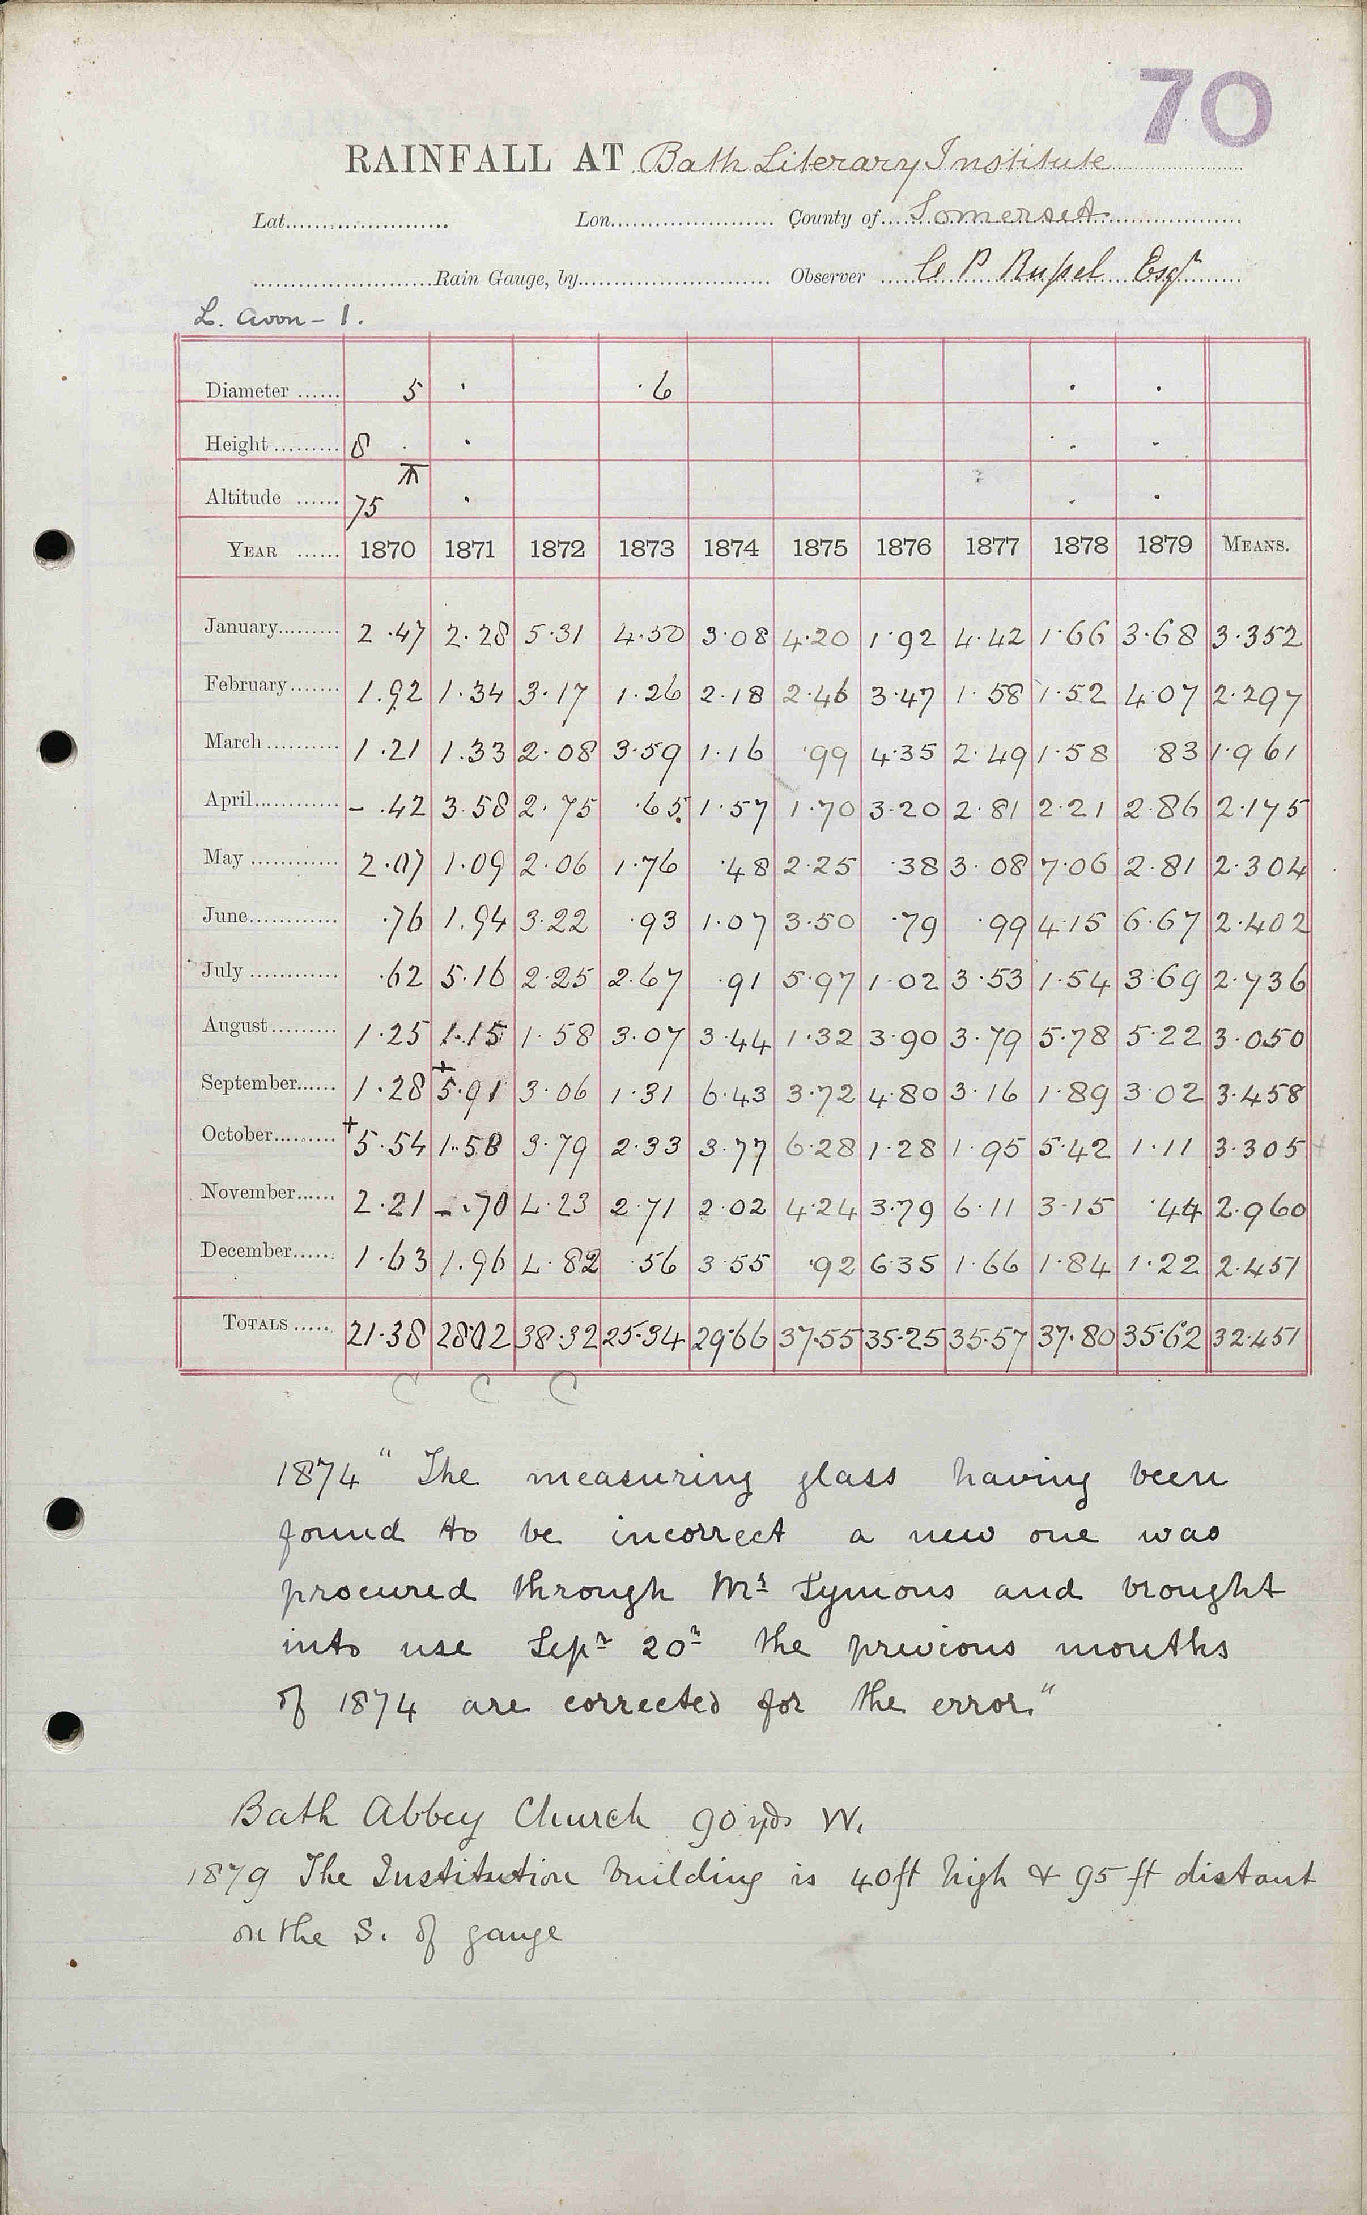 70
RAINFALL AT Bath Literary Institute
Lat. Lon. County of Somerset
Rain Gauge, by Observer C P Russel Esqr
L. Avon - 1.
Diameter 5 . .6 . .
Height 8 . . . .
Altitude 75 . . .
YEAR 1870 1871 1872 1873 1874 1875 1876 1877 1878 1879 MEANS.
January 2.47 2.28 5.31 4.50 3.08 4.20 1.92 4.42 1.66 3.68 3.352
February 1.92 1.34 3.17 1.26 2.18 2.46 3.47 1.58 1.52 4.07 2.297
March 1.21 1.33 2.08 3.59 1.16 .99 4.35 2.49 1.58 .83 1.961
April - .42 3.58 2.75 .65 1.57 1.70 3.20 2.81 2.21 2.86 2.175
May 2.07 1.09 2.06 1.76 .48 2.25 .38 3.08 7.06 2.81 2.304
June .76 1.94 3.22 .93 1.07 3.50 .79 .99 4.15 6.67 2.402
July .62 5.16 2.25 2.67 .91 5.97 1.02 3.53 1.54 3.69 2.736
August 1.25 1.15 1.58 3.07 3.44 1.32 3.90 3.79 5.78 5.22 3.050
September 1.28 +5.91 3.06 1.31 6.43 3.72 4.80 3.16 1.89 3.02 3.458
October +5.54 1.58 3.79 2.33 3.77 6.28 1.28 1.95 5.42 1.11 3.305
November 2.21 -.70 4.23 2.71 2.02 4.24 3.79 6.11 3.15 .44 2.960
December 1.63 1.96 4.82 .56 3.55 .92 6.35 1.66 1.84 1.22 2.451
TOTALS 21.38 28.02 38.32 25.34 29.66 37.55 35.25 35.57 37.80 35.62 32.451
C C C
1874 "The measuring glass having been
found to be incorrect a new one was
procured through Mr Symons and brought
into use Sepr 20th the previous months
of 1874 are corrected for the error."
Bath Abbey Church 90 yds W.
1879 The Institution building is 40ft high & 95 ft distant
on the S. of gauge